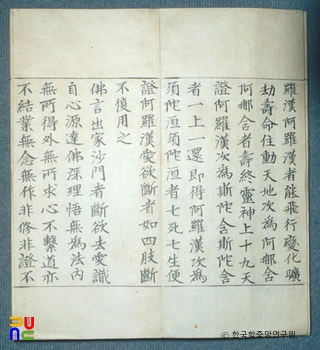 羅漢阿羅漢者能飛行變化曠
劫壽命住動天地次為阿那含
阿那含者壽終靈神上十九天
證阿羅漢次為斯陀含斯陀含
者一上一還即得阿羅漢次為
須陀洹須陀洹者七死七生便
證阿羅漢愛欲斷者如四肢斷
不復用之
佛言出家沙門者斷欲去愛識
自心源達佛深理悟無為法內
無所得外無所求心不繫道亦
不結業無念無作非修非證不
ⓒ 한국학중앙연구원